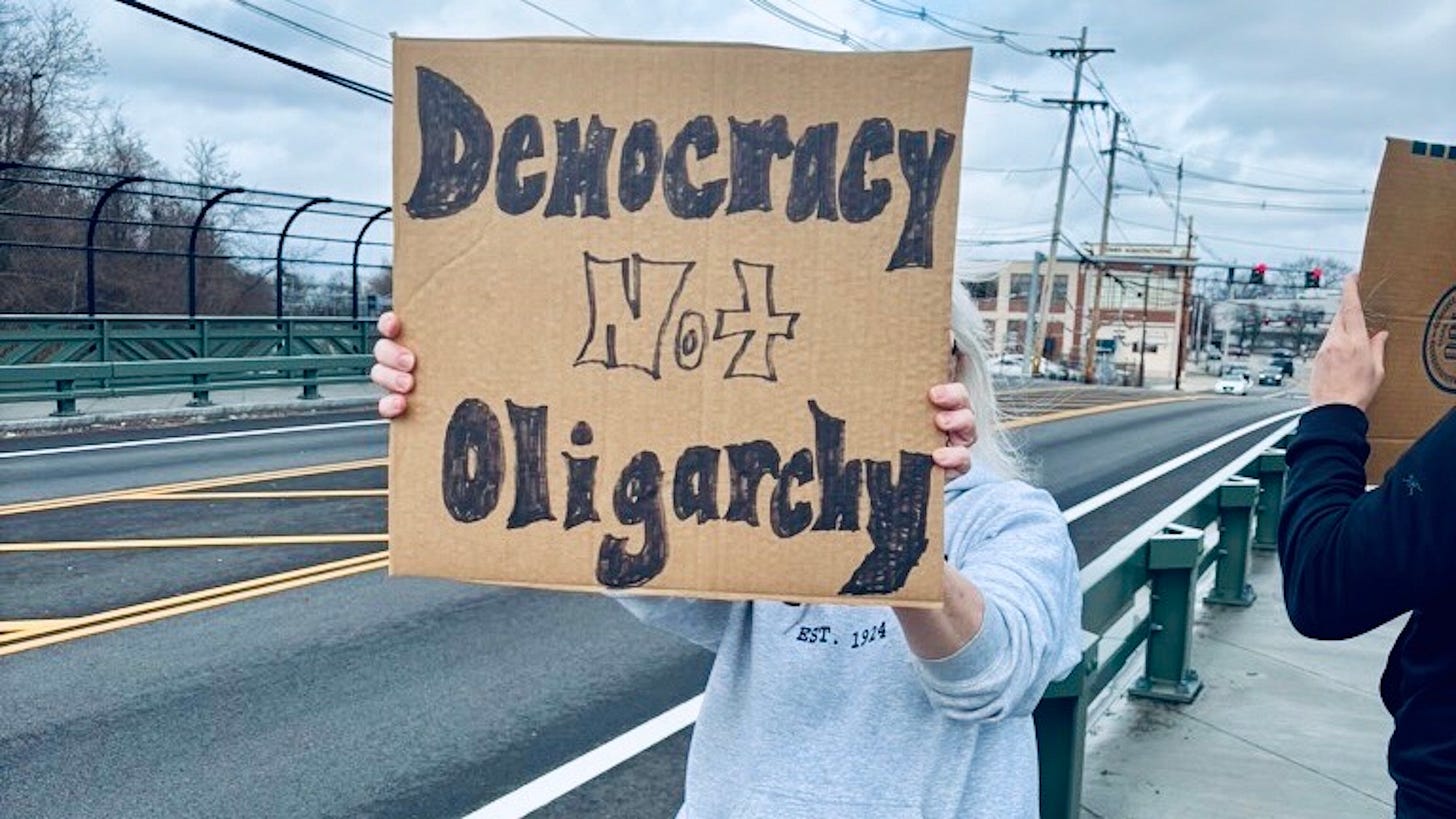 Democracy
Not
Oligarchy
EST. 1924